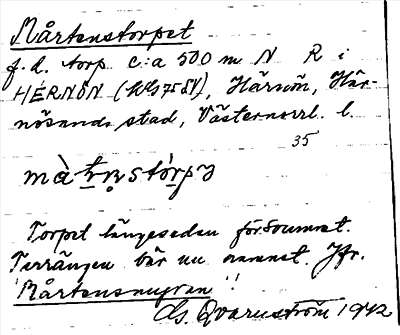 Mårtenstorpet
f.d. torp c:a 500 m N R i
HÉRNÖN (), Härnön, Här-
nösands stad, Västernorrl. l.
35
Torpet längesedan försvunnet.
Terrängen bär nu namnet. Jfr.
"Mårtensmyran"!
G. Qvarnström 1942